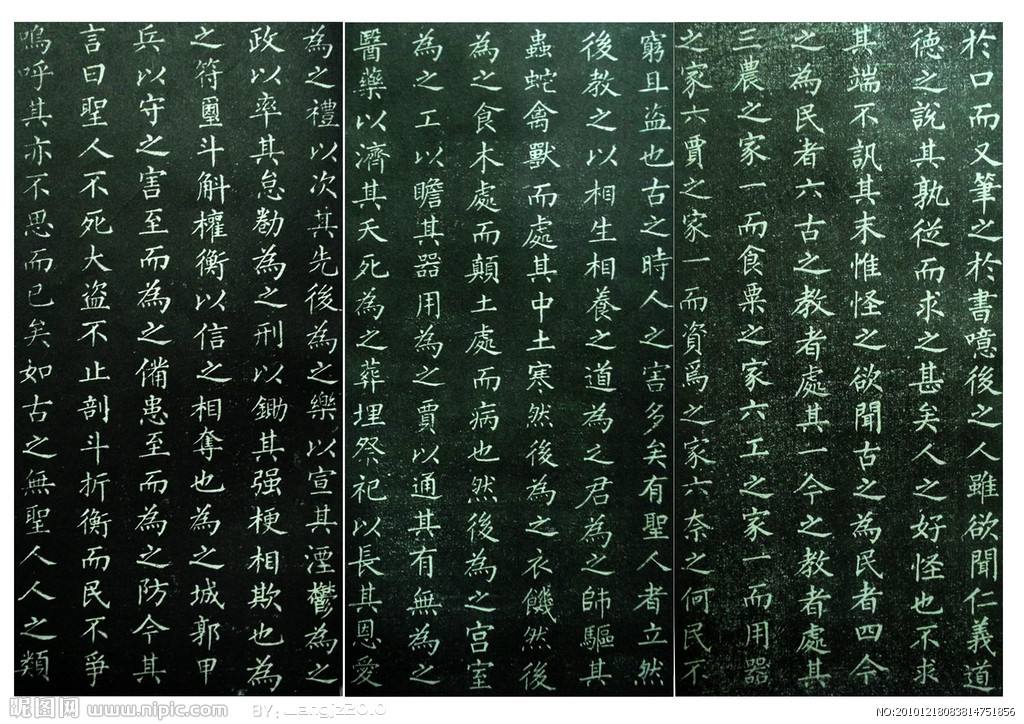 扵口而又筆之扵書噫後之人雖欲聞仁義道
德之說其孰從而求之甚矣人之好怪也不求
其端不訊其末惟怪之欲聞古之為民者四今
之為民者六古之教者處其一今之教者處其
三農之家一而食粟之家六工之家一而用器
之家六賈之家一而資焉之家六奈之何民不
窮且盗也古之時人之害多矣有聖人者立然
後教之以相生相養之道為之君為之師驅其
蟲蛇禽獸而處其中土寒然後為之衣饑然後
為之食木處而顛土處而病也然後為之宮室
為之工以贍其器用為之賈以通其有無為之
醫藥以濟其夭死為之葬埋祭祀以長其恩愛
為之禮以次其先後為之樂以宣其湮鬱為之
政以率其怠勌為之刑以鋤其强梗相欺也為
之符璽斗斛權衡以信之相奪也為之城郭甲
兵以守之害至而為之備患至而為之防今其
言曰聖人不死大盗不止剖斗折衡而民不爭
嗚呼其亦不思而已矣如古之無聖人人之類
昵图网 www.nipic.com BY: Langjz2010
NO:20101218083814751856